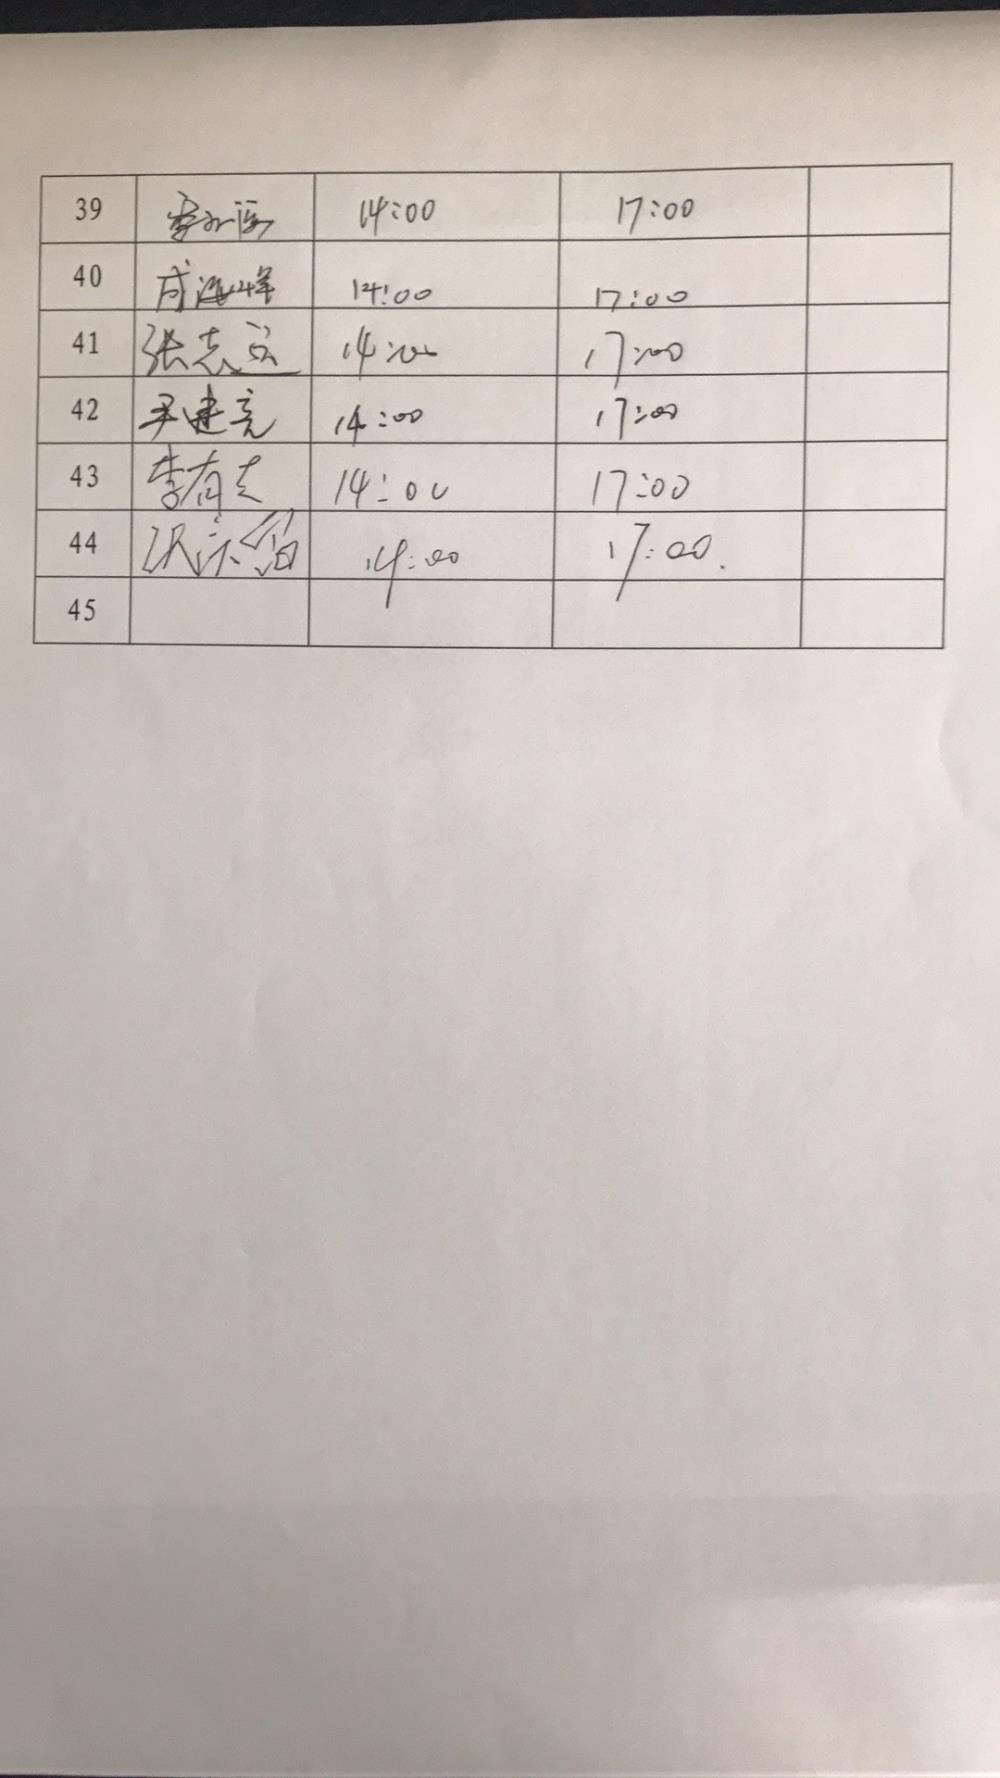 39 14:00 17:00
40 14:00 17:00
41 张志 14:00 17:00
42 尹建亮 14:00 17:00
43 李有志 14:00 17:00
44 14:00 17:00.
45